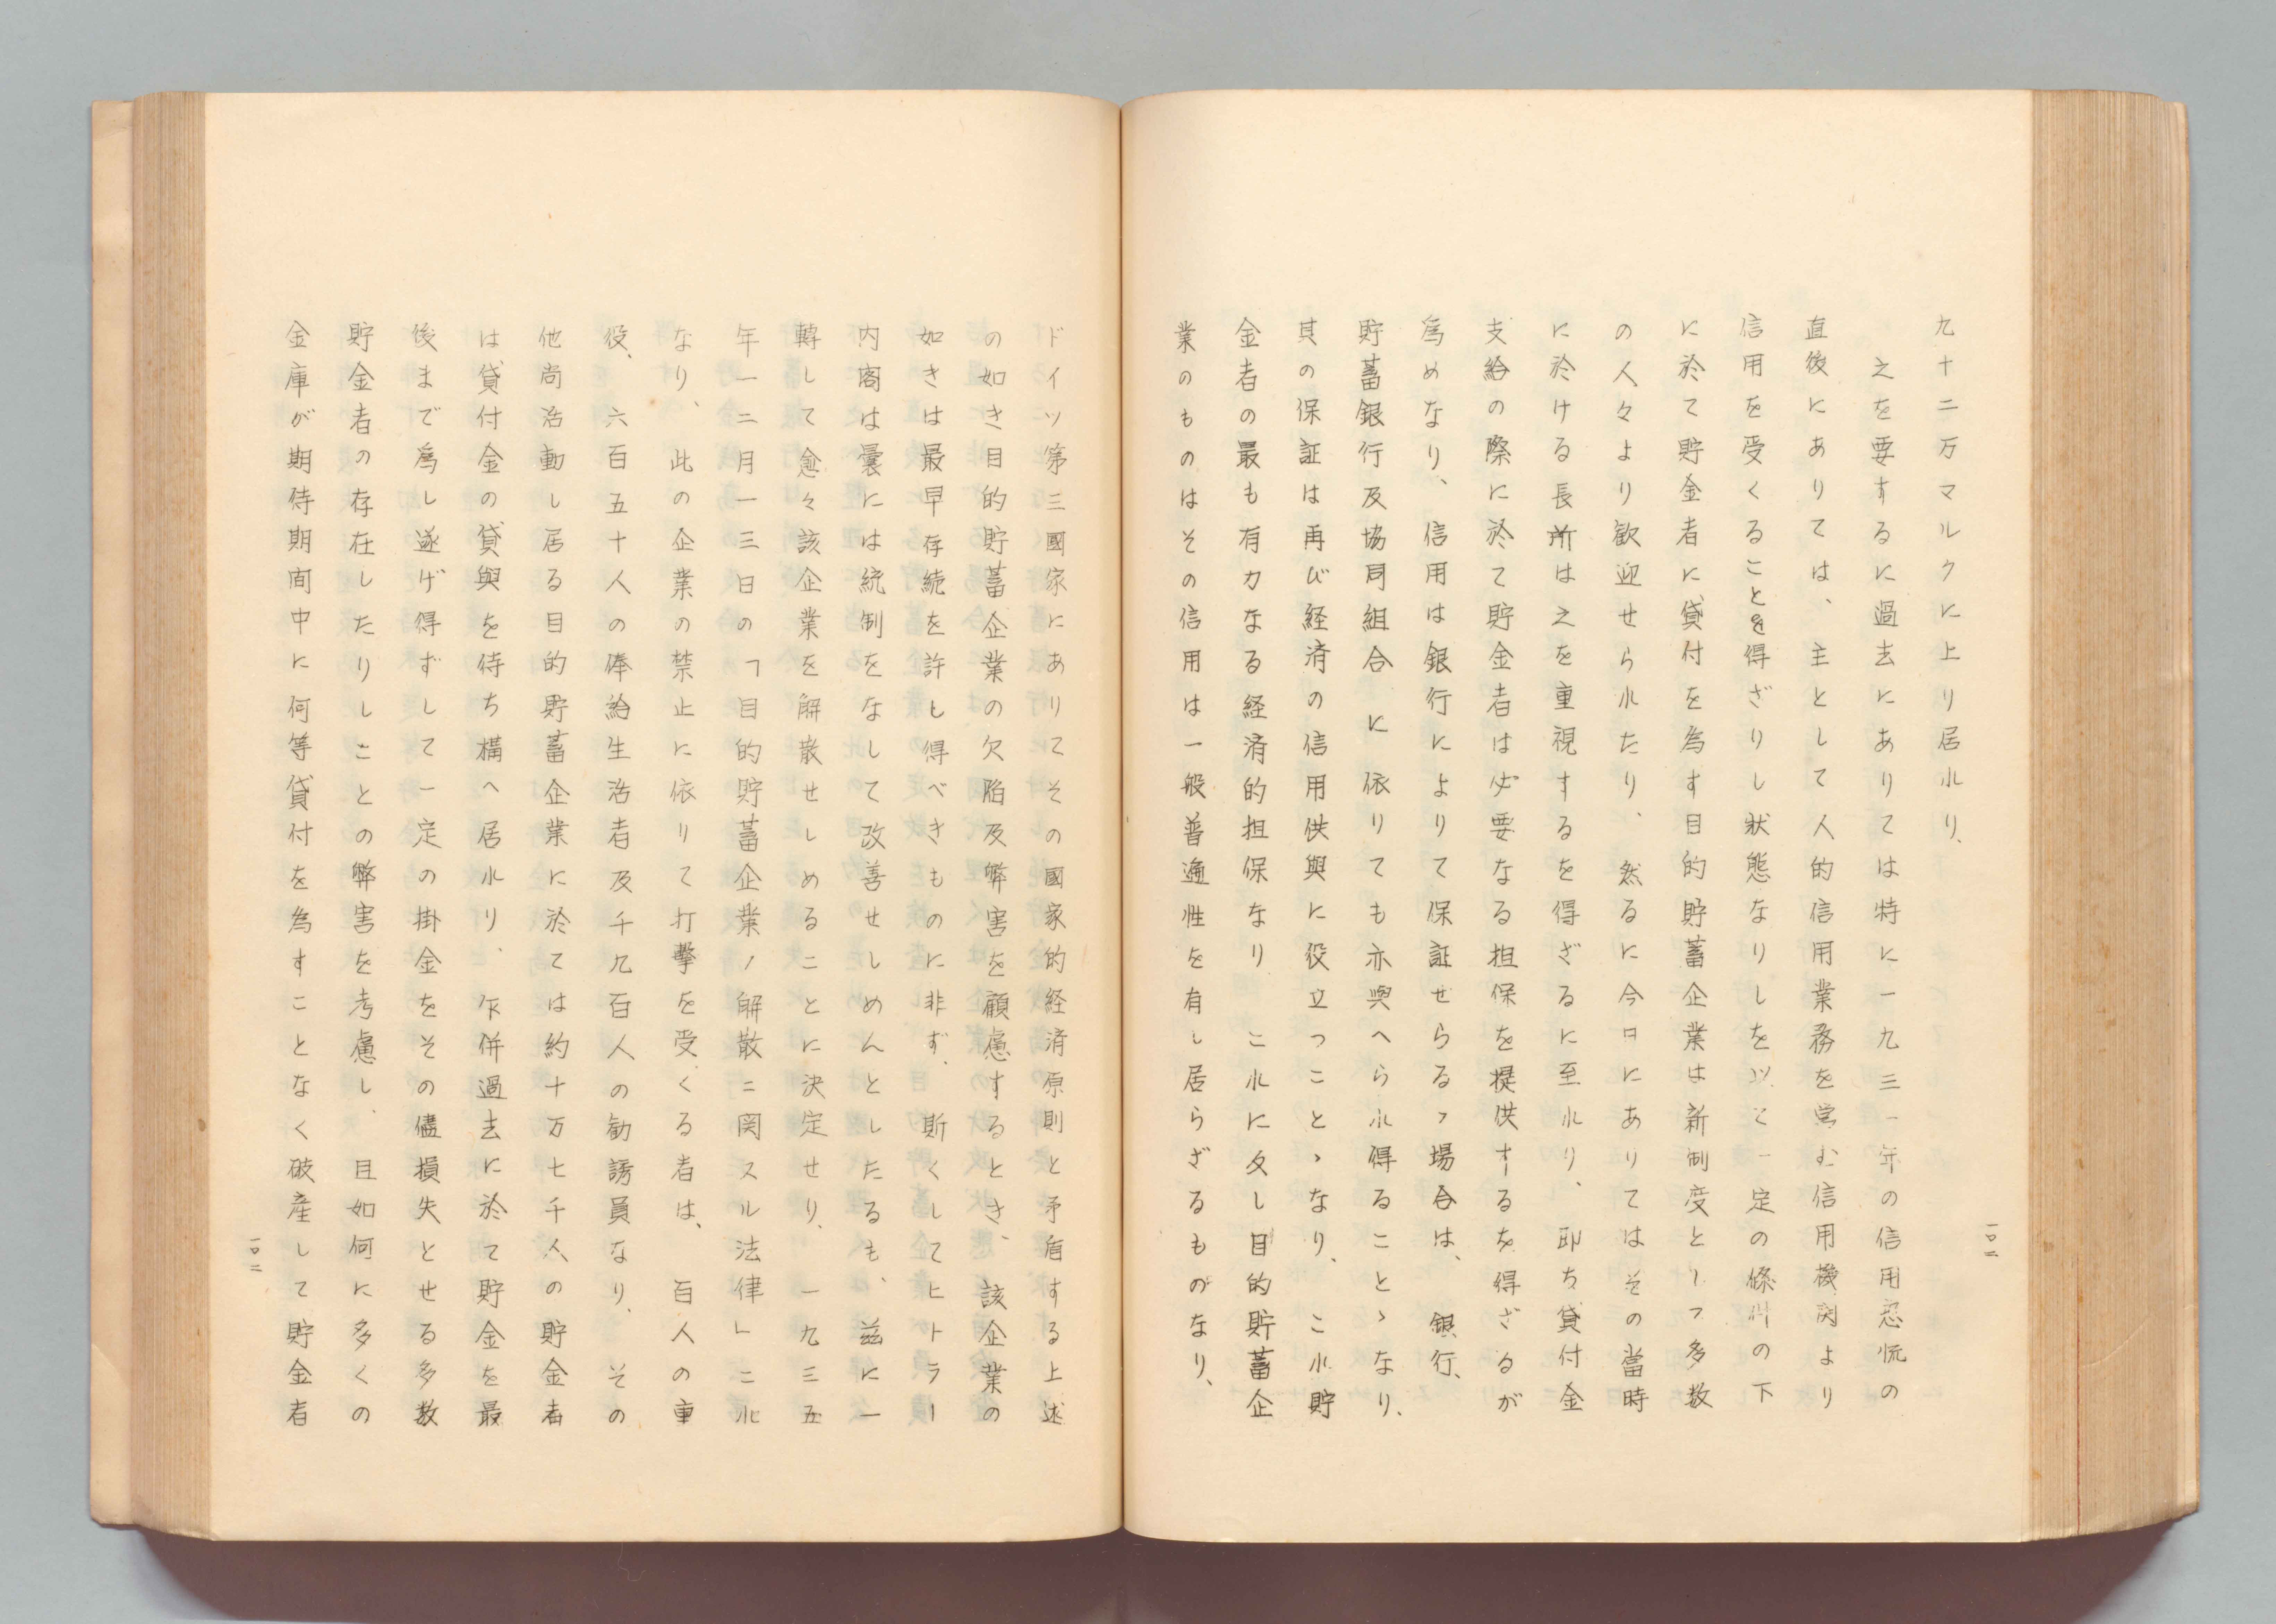 九十二万マルクに上り居れり、
之を要するに過去にありては特に一九三一年の信用恐慌の
直後にありては、主として人的信用業務を営む信用機関より
信用を受くることを得ざりし状態なりしを以て一定の條件の下
に於て貯金者に貸付を為す目的貯蓄企業は新制度として多数
の人々より歓迎せられたり、然るに今日にありてはその當時
に於ける長所は之を重視するを得ざるに至れり、即ち貸付金
支給の際に於て貯金者は必要なる担保を提供するを得ざるが
為めなり、信用は銀行によりて保証せらるゝ場合は、銀行、
貯蓄銀行及協同組合に依りても亦與へられ得ることゝなり、
其の保証は再び経済の信用供與に役立つことゝなり、これ貯
金者の最も有力なる経済的担保なり これに反し目的貯蓄企
業のものはその信用は一般普遍性を有し居らざるものなり、
一〇二
ドイツ第三國家にありてその國家的経済原則と矛盾する上述
の如き目的貯蓄企業の欠陥及弊害を顧慮するとき、該企業の
如きは最早存続を許し得べきものに非ず、斯くしてヒトラー
内閣は曩には統制をなして改善せしめんとしたるも、茲に一
轉して愈々該企業を解散せしめることに決定せり、一九三五
年一二月一三日の「目的貯蓄企業ノ解散ニ関スル法律」これ
なり、此の企業の禁止に依りて打撃を受くる者は、百人の重
役、六百五十人の俸給生活者及千九百人の勧誘員なり、その
他尚活動し居る目的貯蓄企業に於ては約十万七千人の貯金者
は貸付金の貸與を待ち構へ居れり、乍併過去に於て貯金を最
後まで為し遂げ得ずして一定の掛金をその儘損失とせる多数
貯金者の存在したりしことの弊害を考慮し、且如何に多くの
金庫が期待期間中に何等貸付を為すことなく破産して貯金者
一〇二